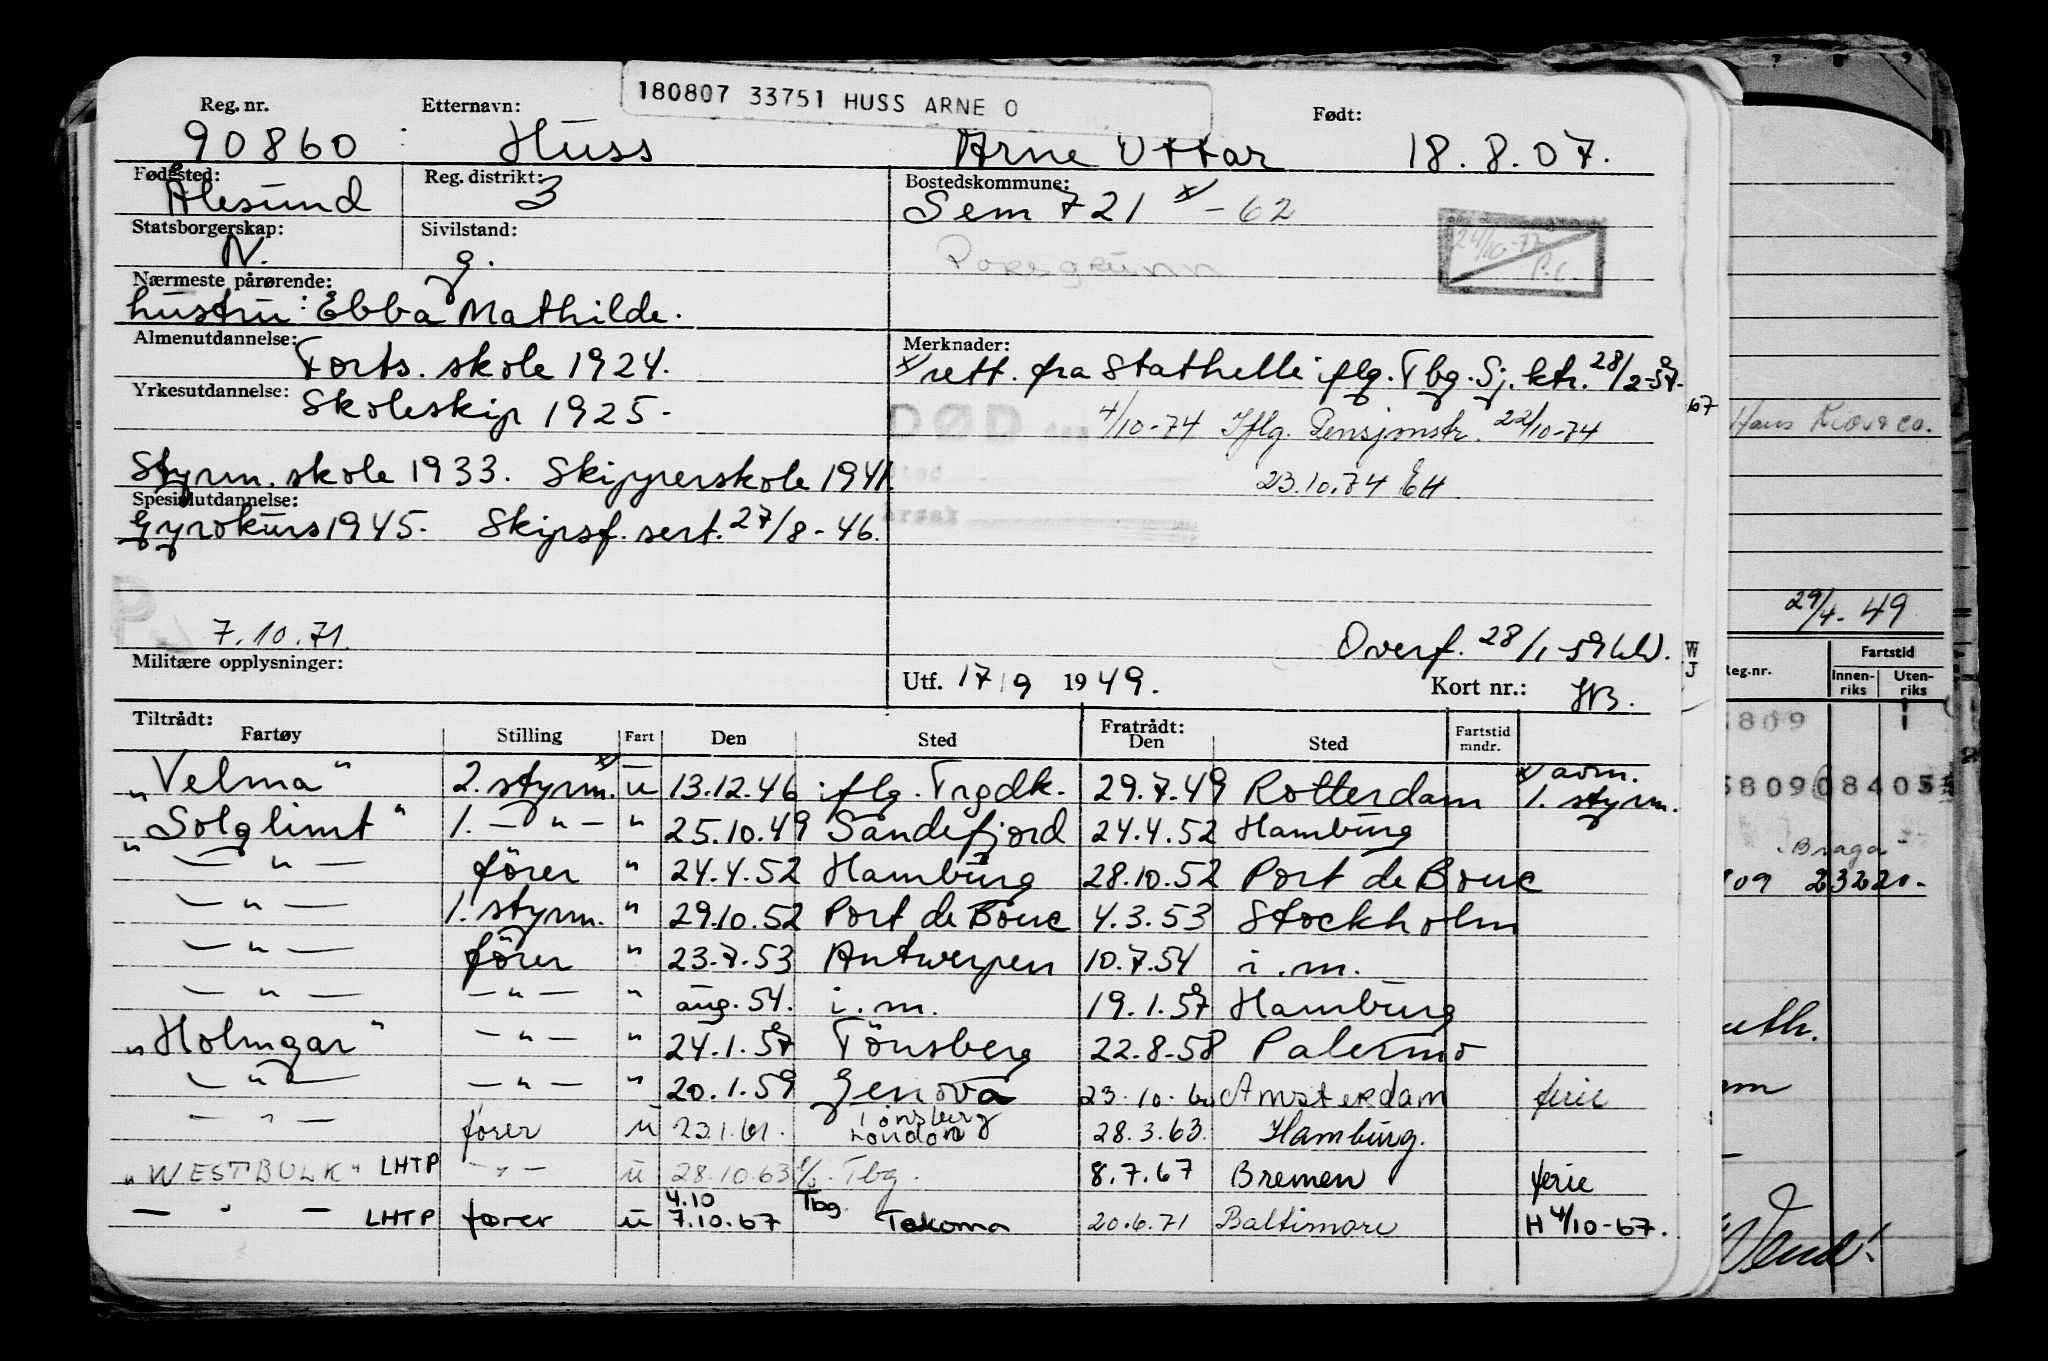 180807 33751 HUSS ARNE O
Reg. nr. Etternavn: Født:
90860 Huss Arne Ottar 18.8.07.
Fødested: Reg. distrikt: Bostedskommune:
Ålesund 3 Sem 721 x/ - 62
Statsborgerskap: Sivilstand:
N. g. Porsgrunn
24/10-72 P.C.
Nærmeste pårørende:
hustru: Ebba Mathilde.
Almenutdannelse: Merknader:
Forts. skole 1924. x/ rett. fra Stathelle iflg. Tbg. Sj. ktr. 28/2-57.
67
Yrkesutdannelse:
Skoleskip 1925. DØD den 4/10-74 Iflg. Pensjonstr. 22/10-74
Styrm. skole 1933. Skipperskole 1941. sted 23.10.74 EH
Spesialutdannelse:
Gyrokurs 1945. Skipsf. sert. 27/8-46. årsak
7.10.71. Overf. 28/1-59
Militære opplysninger: Utf. 17/9 1949. Kort nr.: HB.
W
J
Tiltrådt: Fratrådt:
Fartøy Stilling Fart Den Sted Den Sted Fartstid mndr.
"Velma" 2. styrm. x/ u 13.12.46 iflg. Trgdk. 29.7.49 Rotterdam x/ avm. 1. styrm.
"Solglimt" 1. — " — " 25.10.49 Sandefjord 24.4.52 Hamburg
— " — förer " 24.4.52 Hamburg 28.10.52 Port de Bouc
— " — 1. styrm. " 29.10.52 Port de Bouc 4.3.53 Stockholm
— " — förer " 23.7.53 Antwerpen 10.7.54 i.m.
— " — — " — " aug. 54. i.m. 19.1.57 Hamburg
"Holmgar" — " — " 24.1.57 Tönsberg 22.8.58 Palermo
— " — — " — " 20.1.59 Genova 23.10.60 Amsterdam ferie
— " — fører u 23.1.61. Tønsberg London 28.3.63. Hamburg.
"WESTBULK" LHTP — " — u 28.10.63 Tbg. 8.7.67 Bremen ferie
— " — LHTP fører u 4.10 7.10.67 Tbg. Takoma 20.6.71 Baltimore H 4/10-67.
Hans
29/4-49
Reg.nr. Fartstid
Innen-riks Uten-riks
809
5809 08405
"Braga"
809 23220-